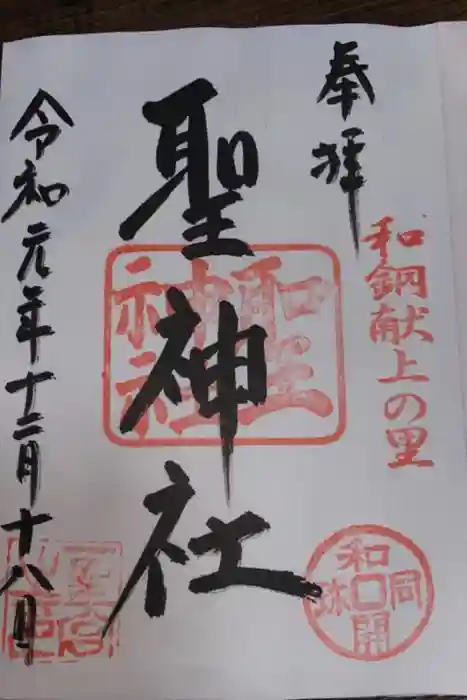 奉拝
和銅献上の里
聖神社
聖神社
和同開珎
令和元年十二月十八日